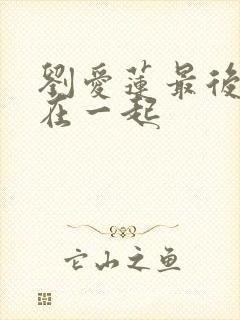 劉愛蓮最後
在一起
它山之鱼